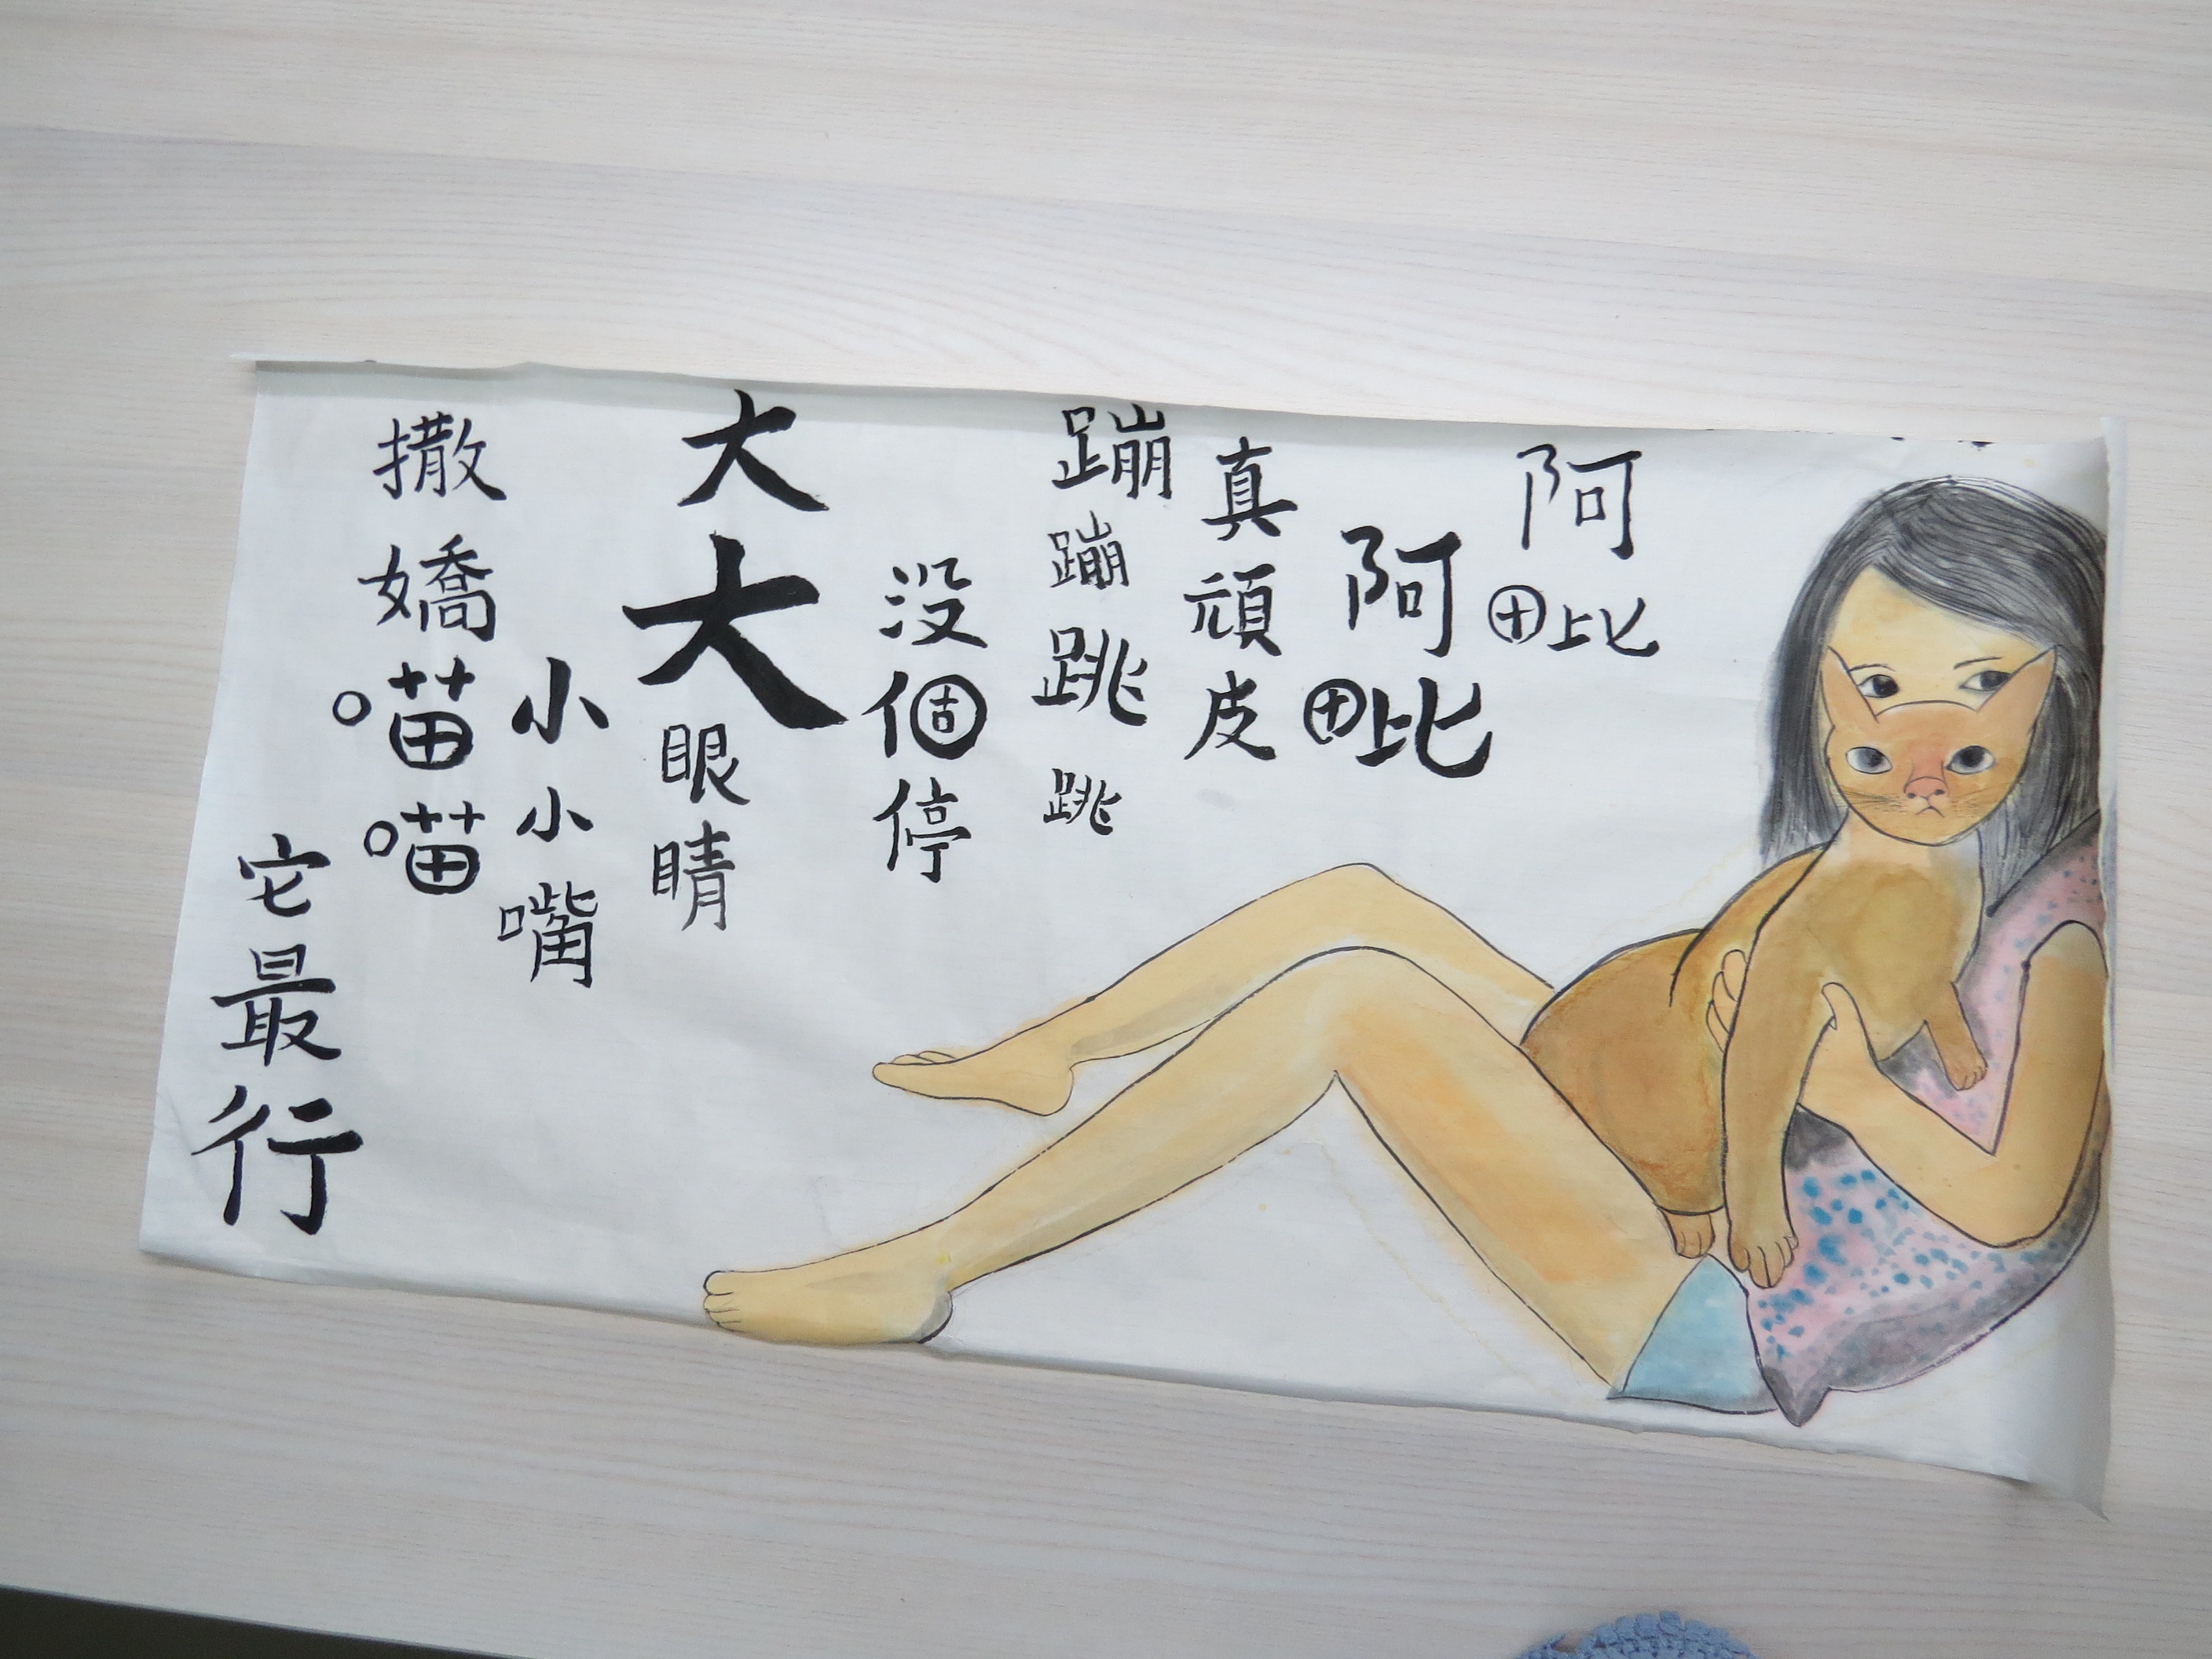 阿毗
阿毗
真頑皮
蹦蹦跳跳
没個停
大大眼睛
小小嘴
撒嬌喵喵
它最行